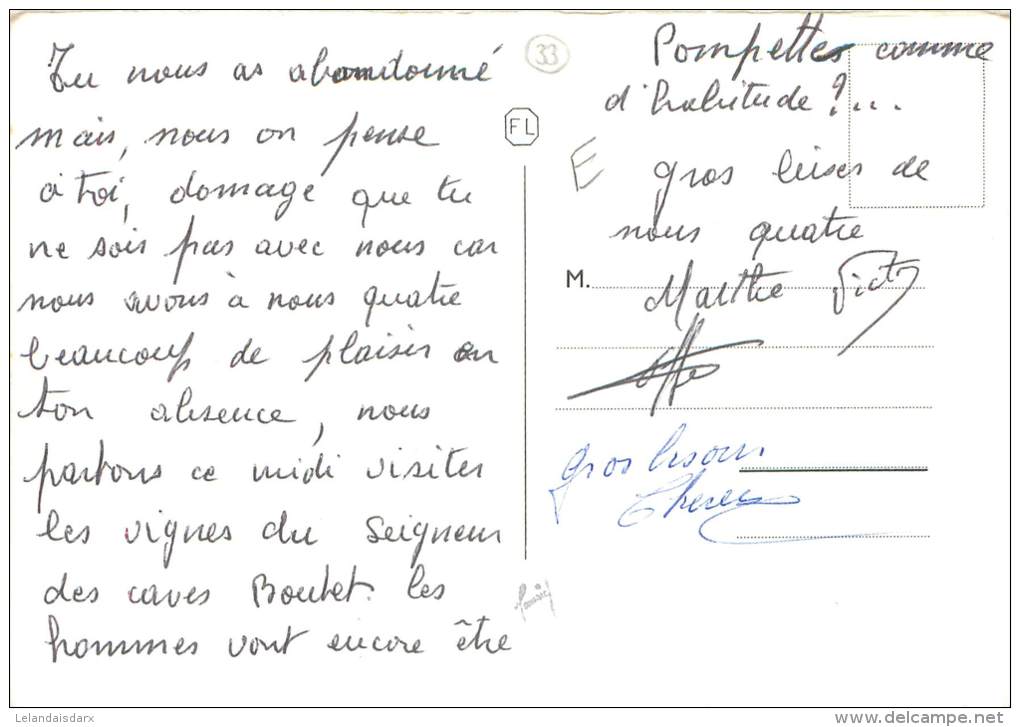 Tu nous as abandonné
mais, nous on pense
à toi, domage que tu
ne sois pas avec nous car
nous avons à nous quatre
beaucoup de plaisir en
ton absence, nous
partons ce midi visiter
les vignes du Seigneur
des caves Boutet. les
hommes vont encore être
33
FL
Pompettes comme
d'habitude ?...
E
gros bises de
nous quatre
M.
Marthe
gros bisous
Lelandaisdarx
www.delcampe.net